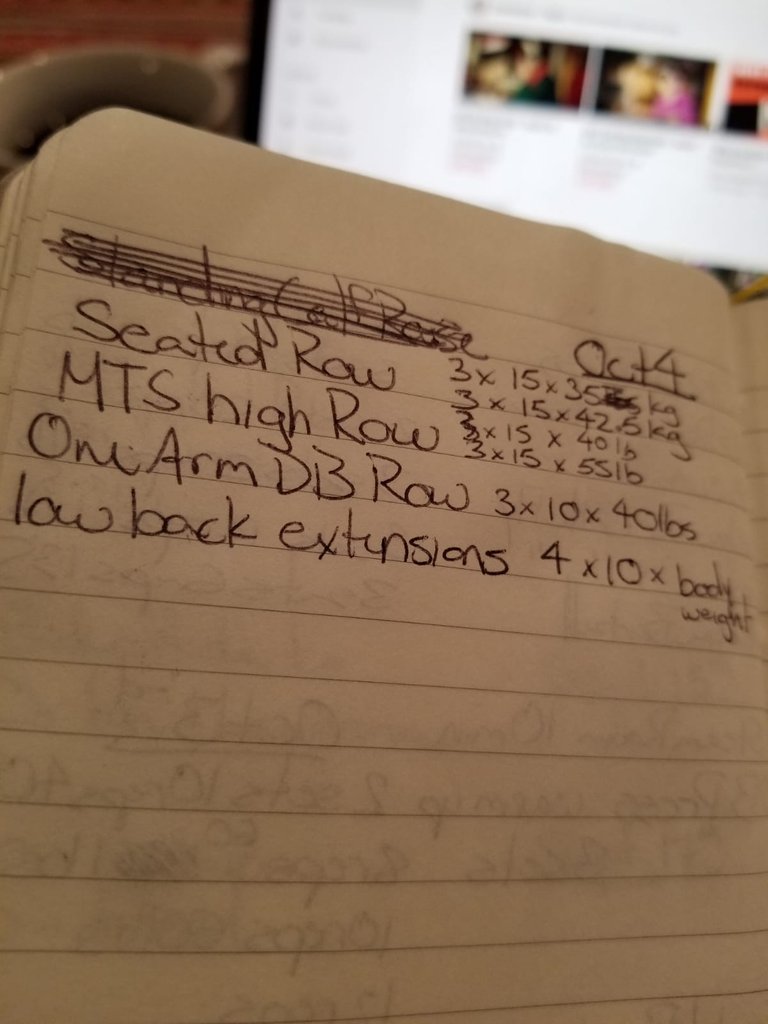 Standing Calf Raise
Oct 4
Seated Row 3 x 15 x 35 kg
3 x 15 x 42.5 kg
MTS high Row 3 x 15 x 40 lb
3 x 15 x 55 lb
One Arm DB Row 3 x 10 x 40 lbs
low back extensions 4 x 10 x body
weight